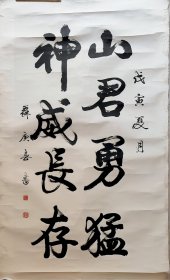 戊寅夏月
山君勇猛
神威長存